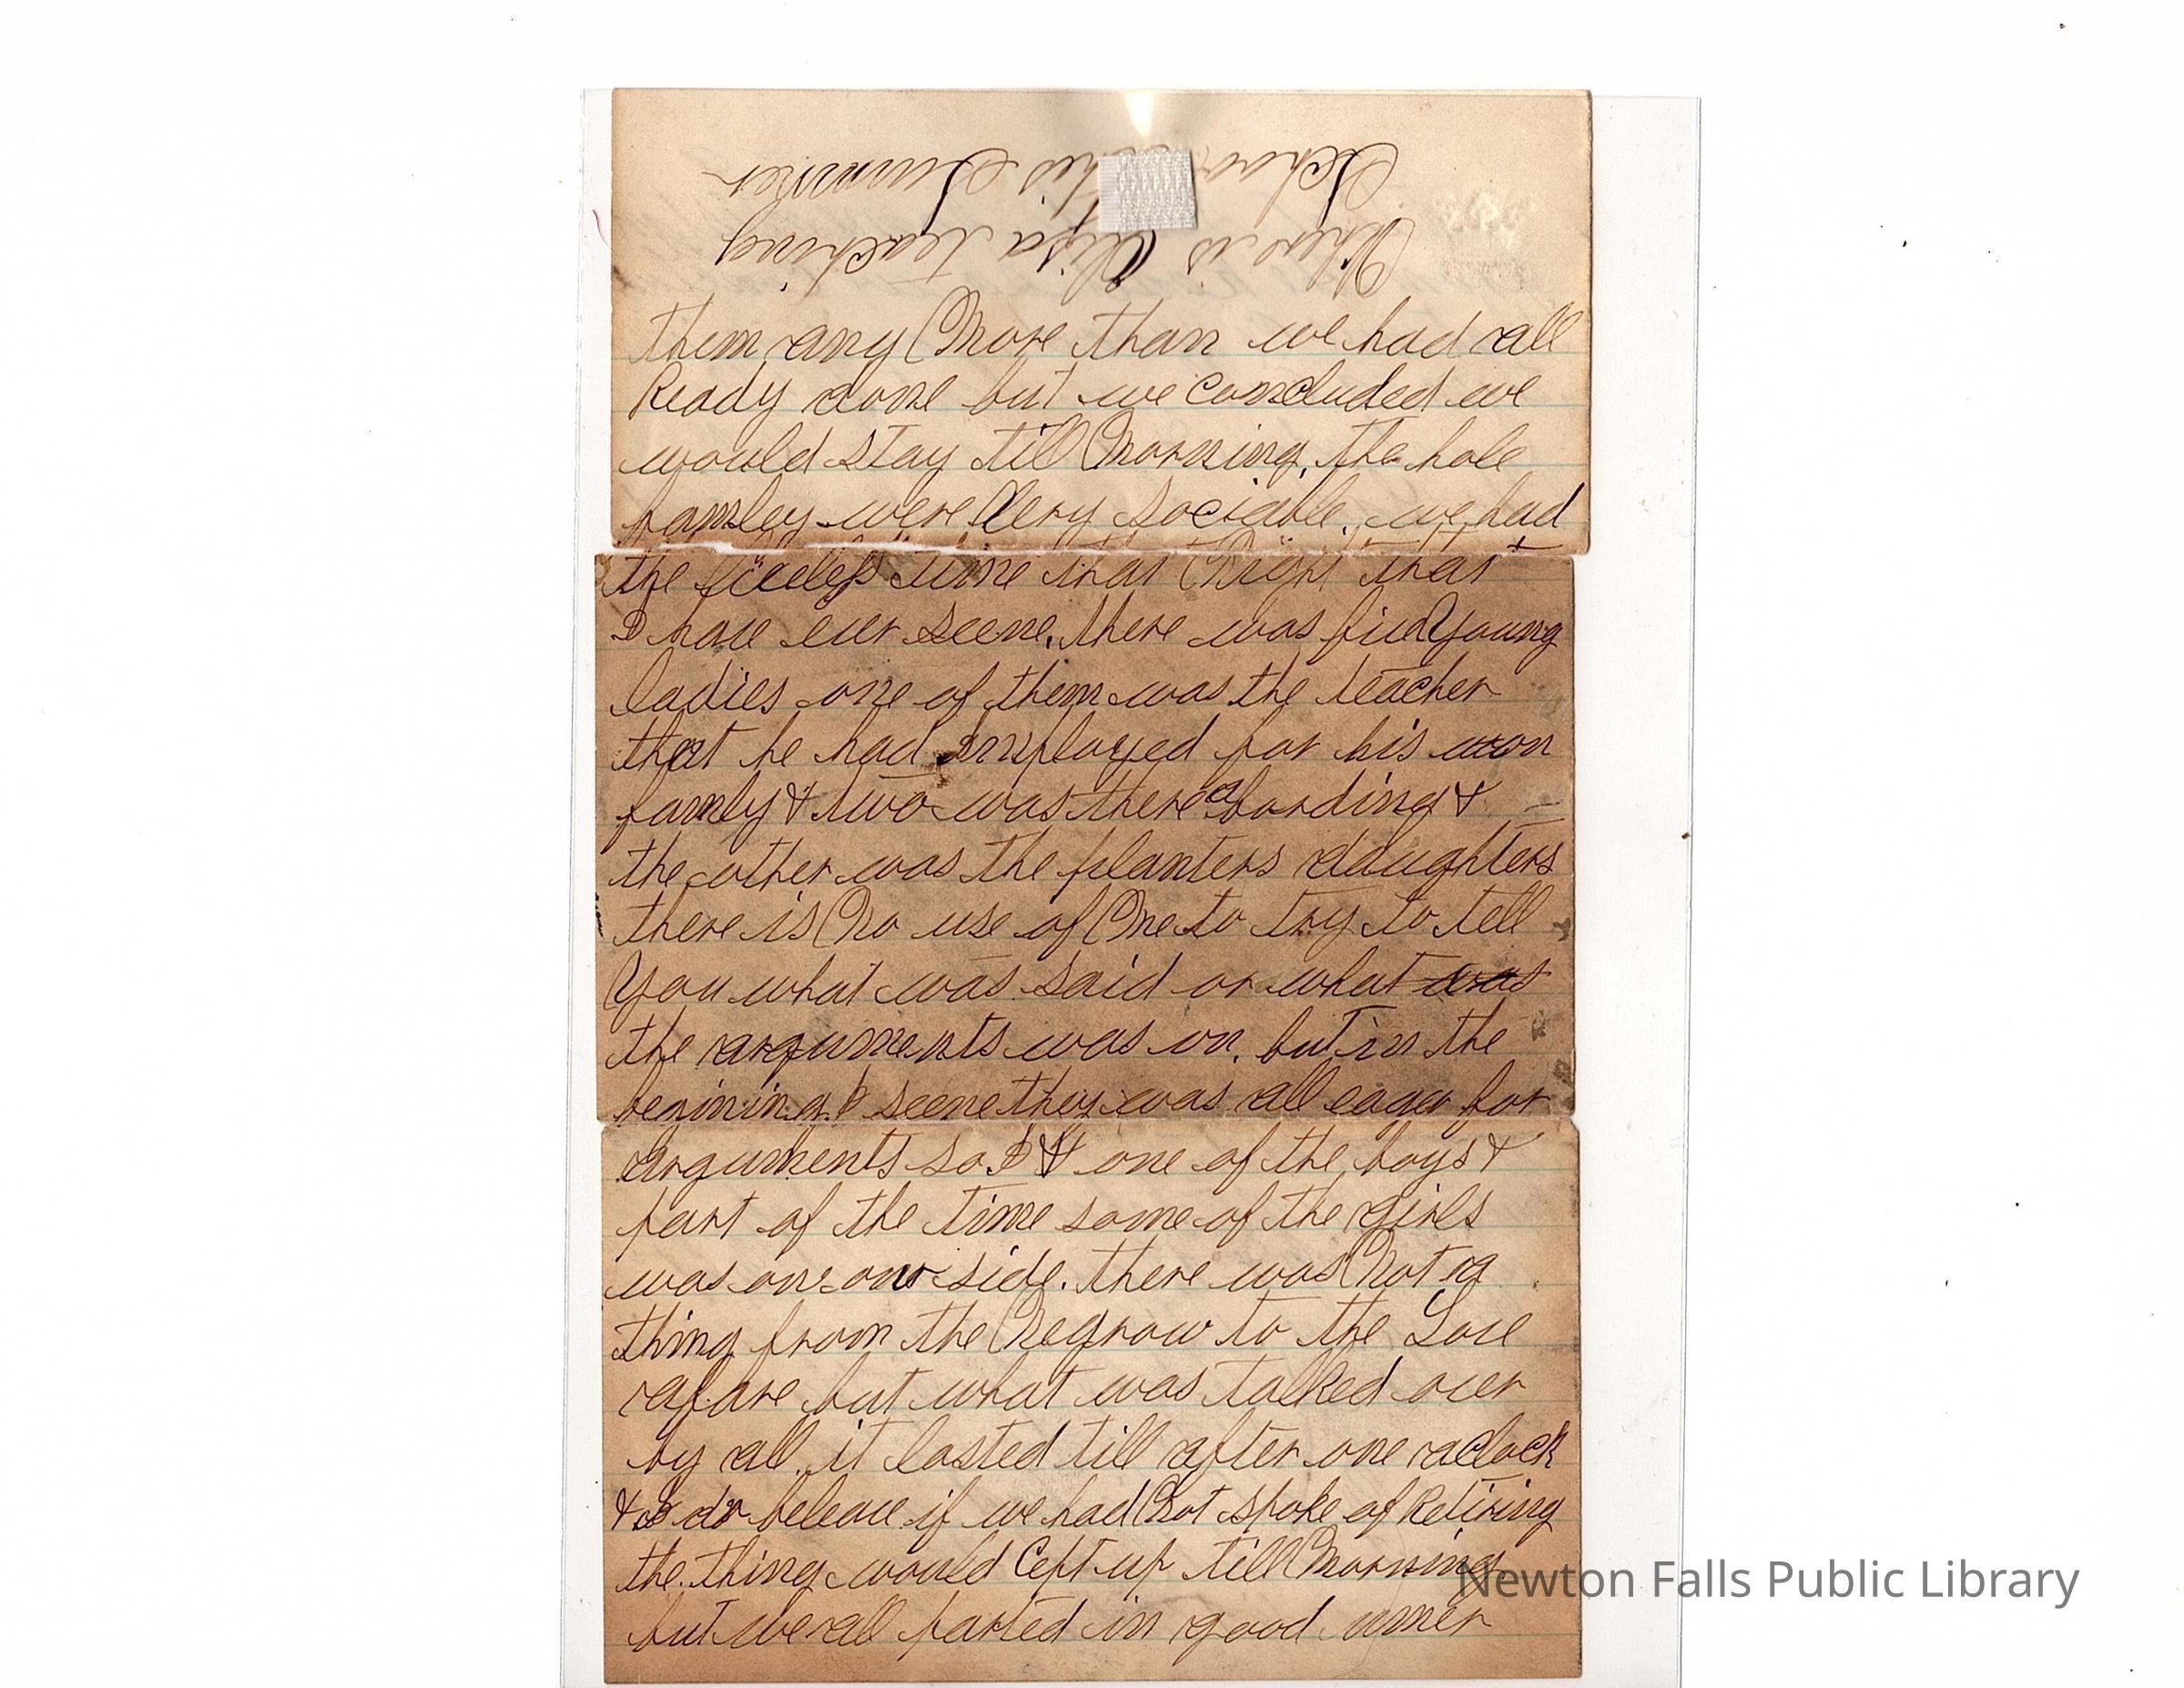 Where is Elisa teaching
School this Summer
them any More than we had all
Ready done but we concluded we
would stay till Morning. the hole
famley were Very Sociable. we had
the time that Night that
I have ever seene. there was five Young
ladies one of them was the teacher
that he had Imployed for his own
famly & two was there a bording &
the other was the planters daughters
there is No use of Me to try to tell
You what was said or what was
the arguments was on. but in the
begining I seene they was all eager for
arguments so I & one of the boys &
part of the time some of the girls
was one our side. there was Not a
thing from the Negrow to the Love
afare but what was talked over
by all. it lasted till after one aclock
& I do beleave if we had Not spoke of Retiring
the thing would Cept up till Morning
but we all parted in good umer
Newton Falls Public Library